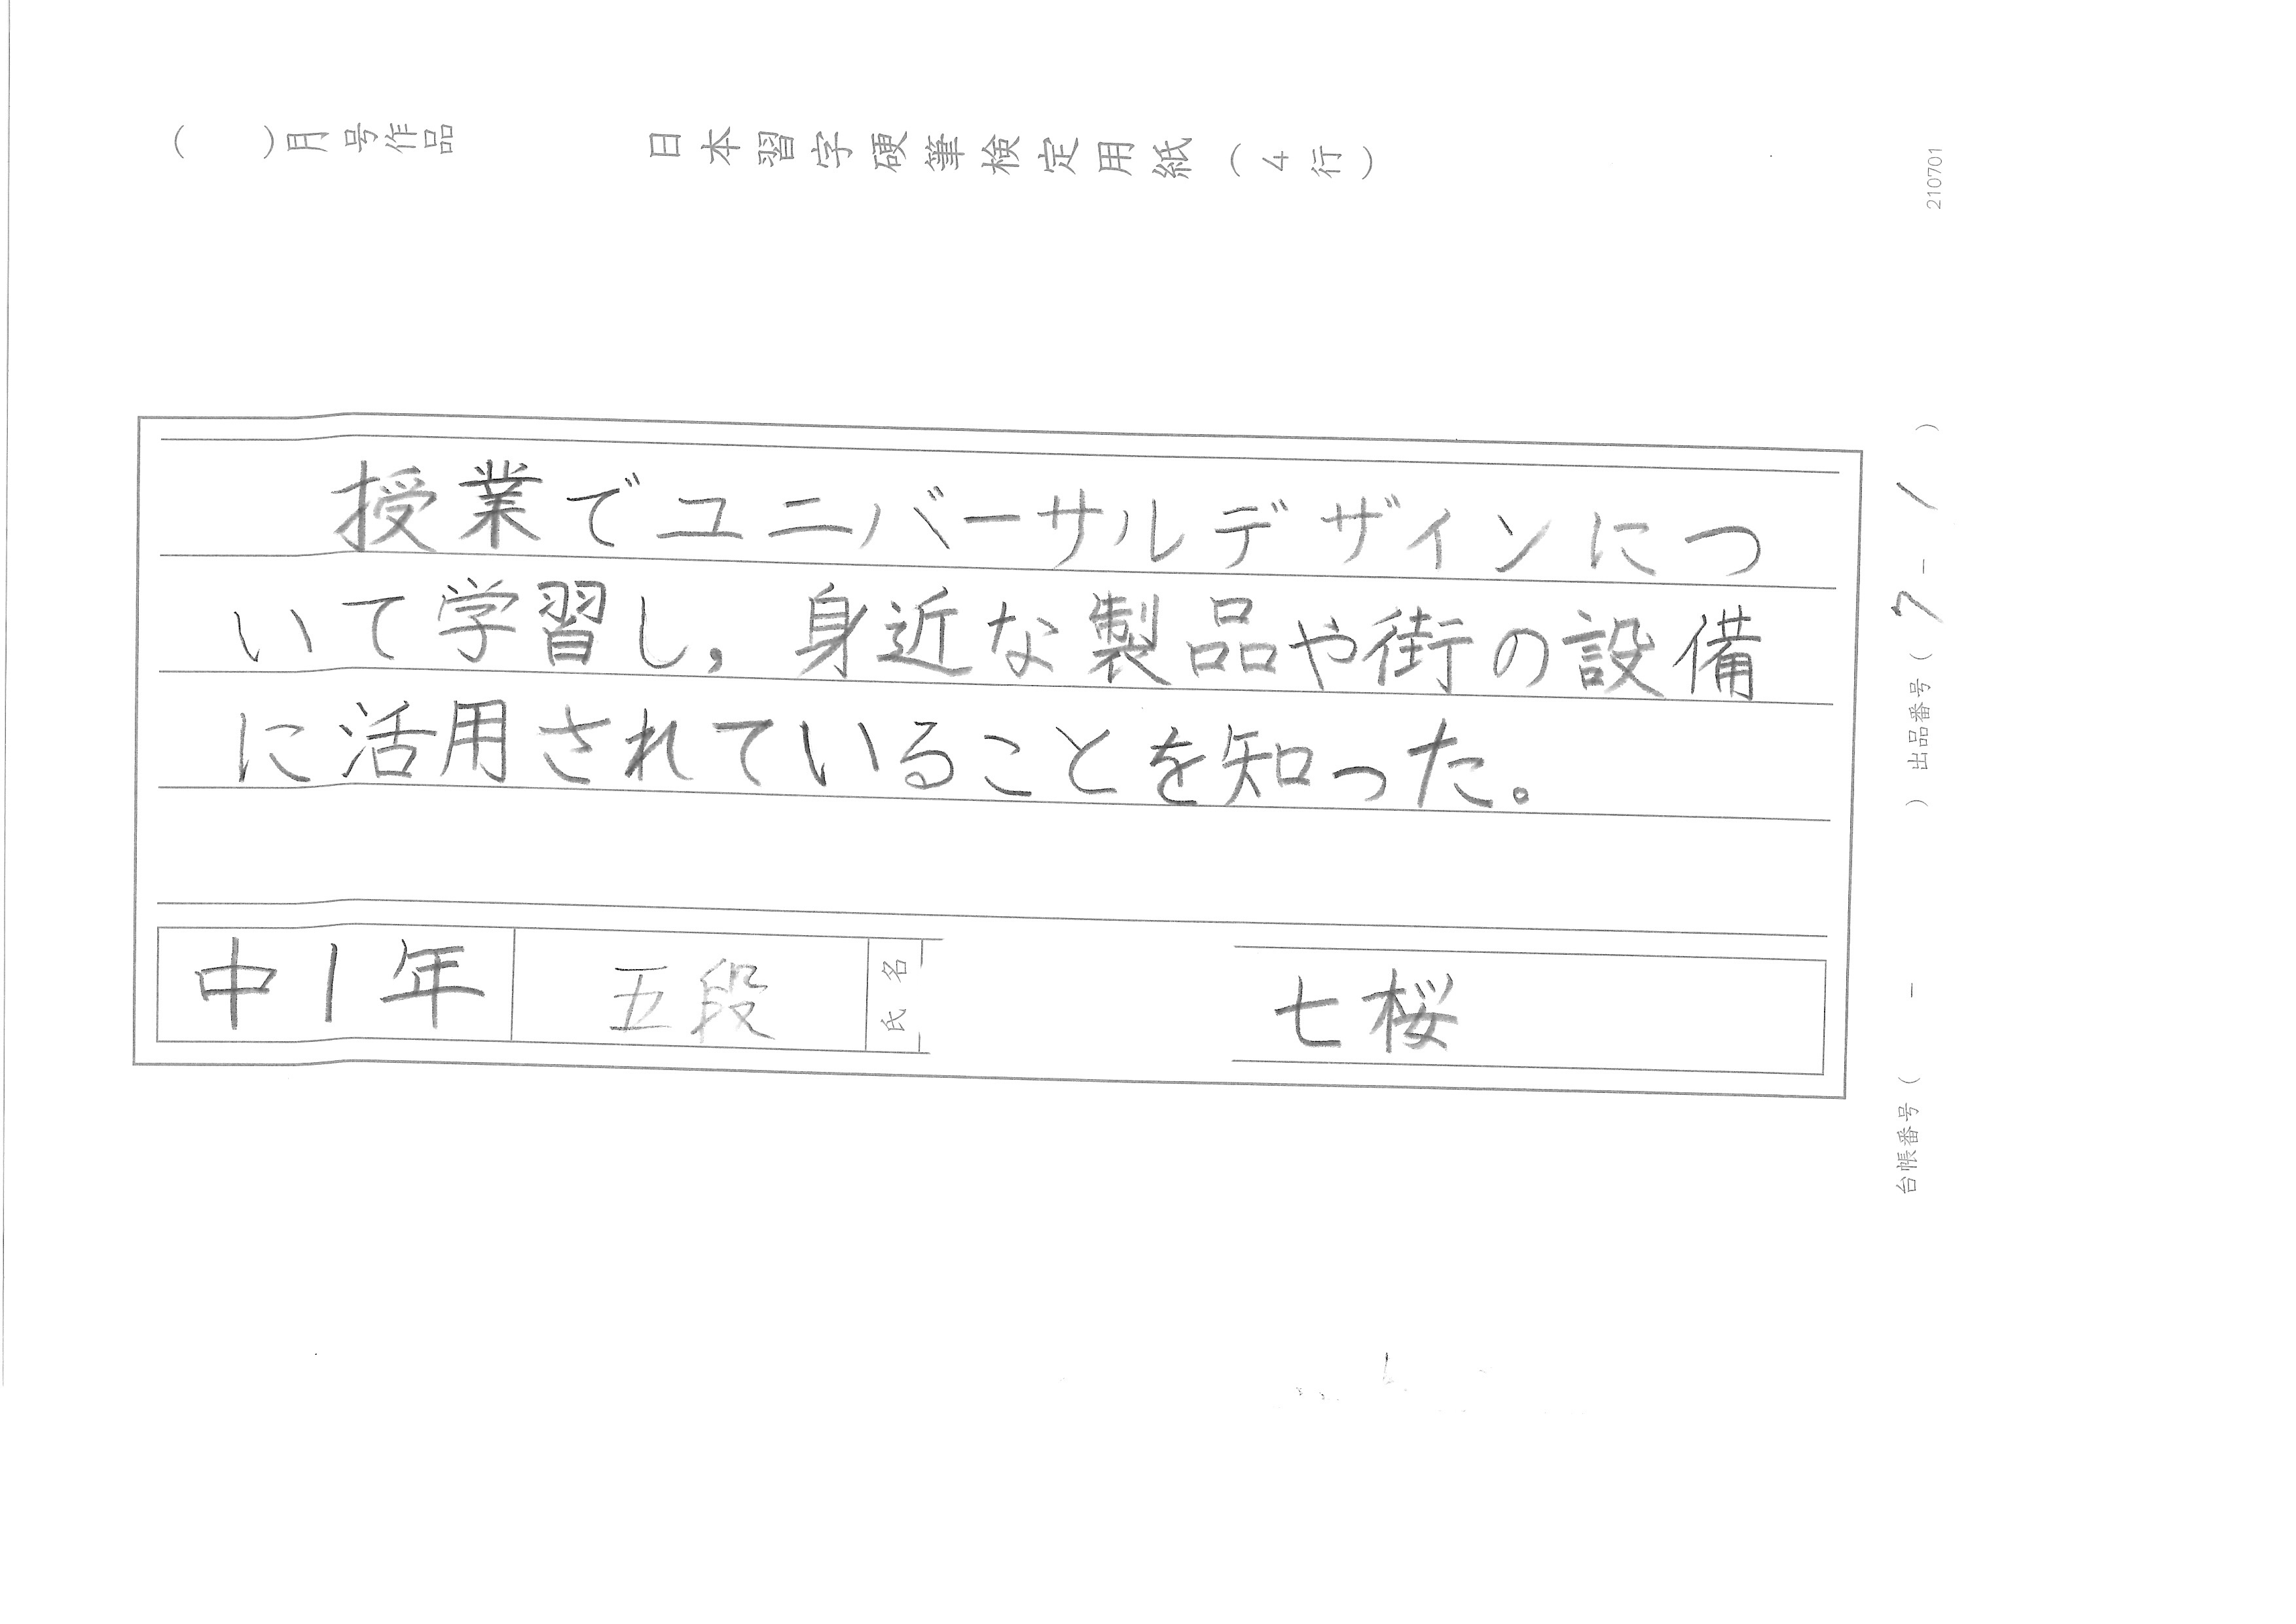 (　　)月号作品　日本習字硬筆検定用紙(4行)
210701
授業でユニバーサルデザインにつ
いて学習し,身近な製品や街の設備
に活用されていることを知った。
中1年 五段 氏名 七桜
台帳番号(　-　) 出品番号(7-1)